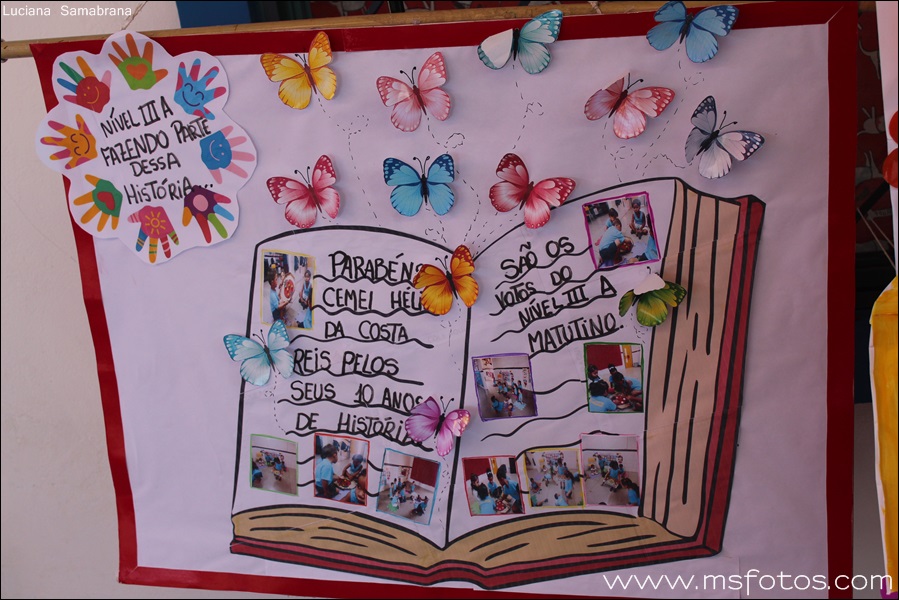 Luciana Samabrana
NÍVEL III A
FAZENDO PARTE
DESSA
HISTÓRIA...
PARABÉNS
CEMEI HÉLI
DA COSTA
REIS PELOS
SEUS 10 ANOS
DE HISTÓRIA
SÃO OS
VOTOS DO
NÍVEL III A
MATUTINO.
www.msfotos.com